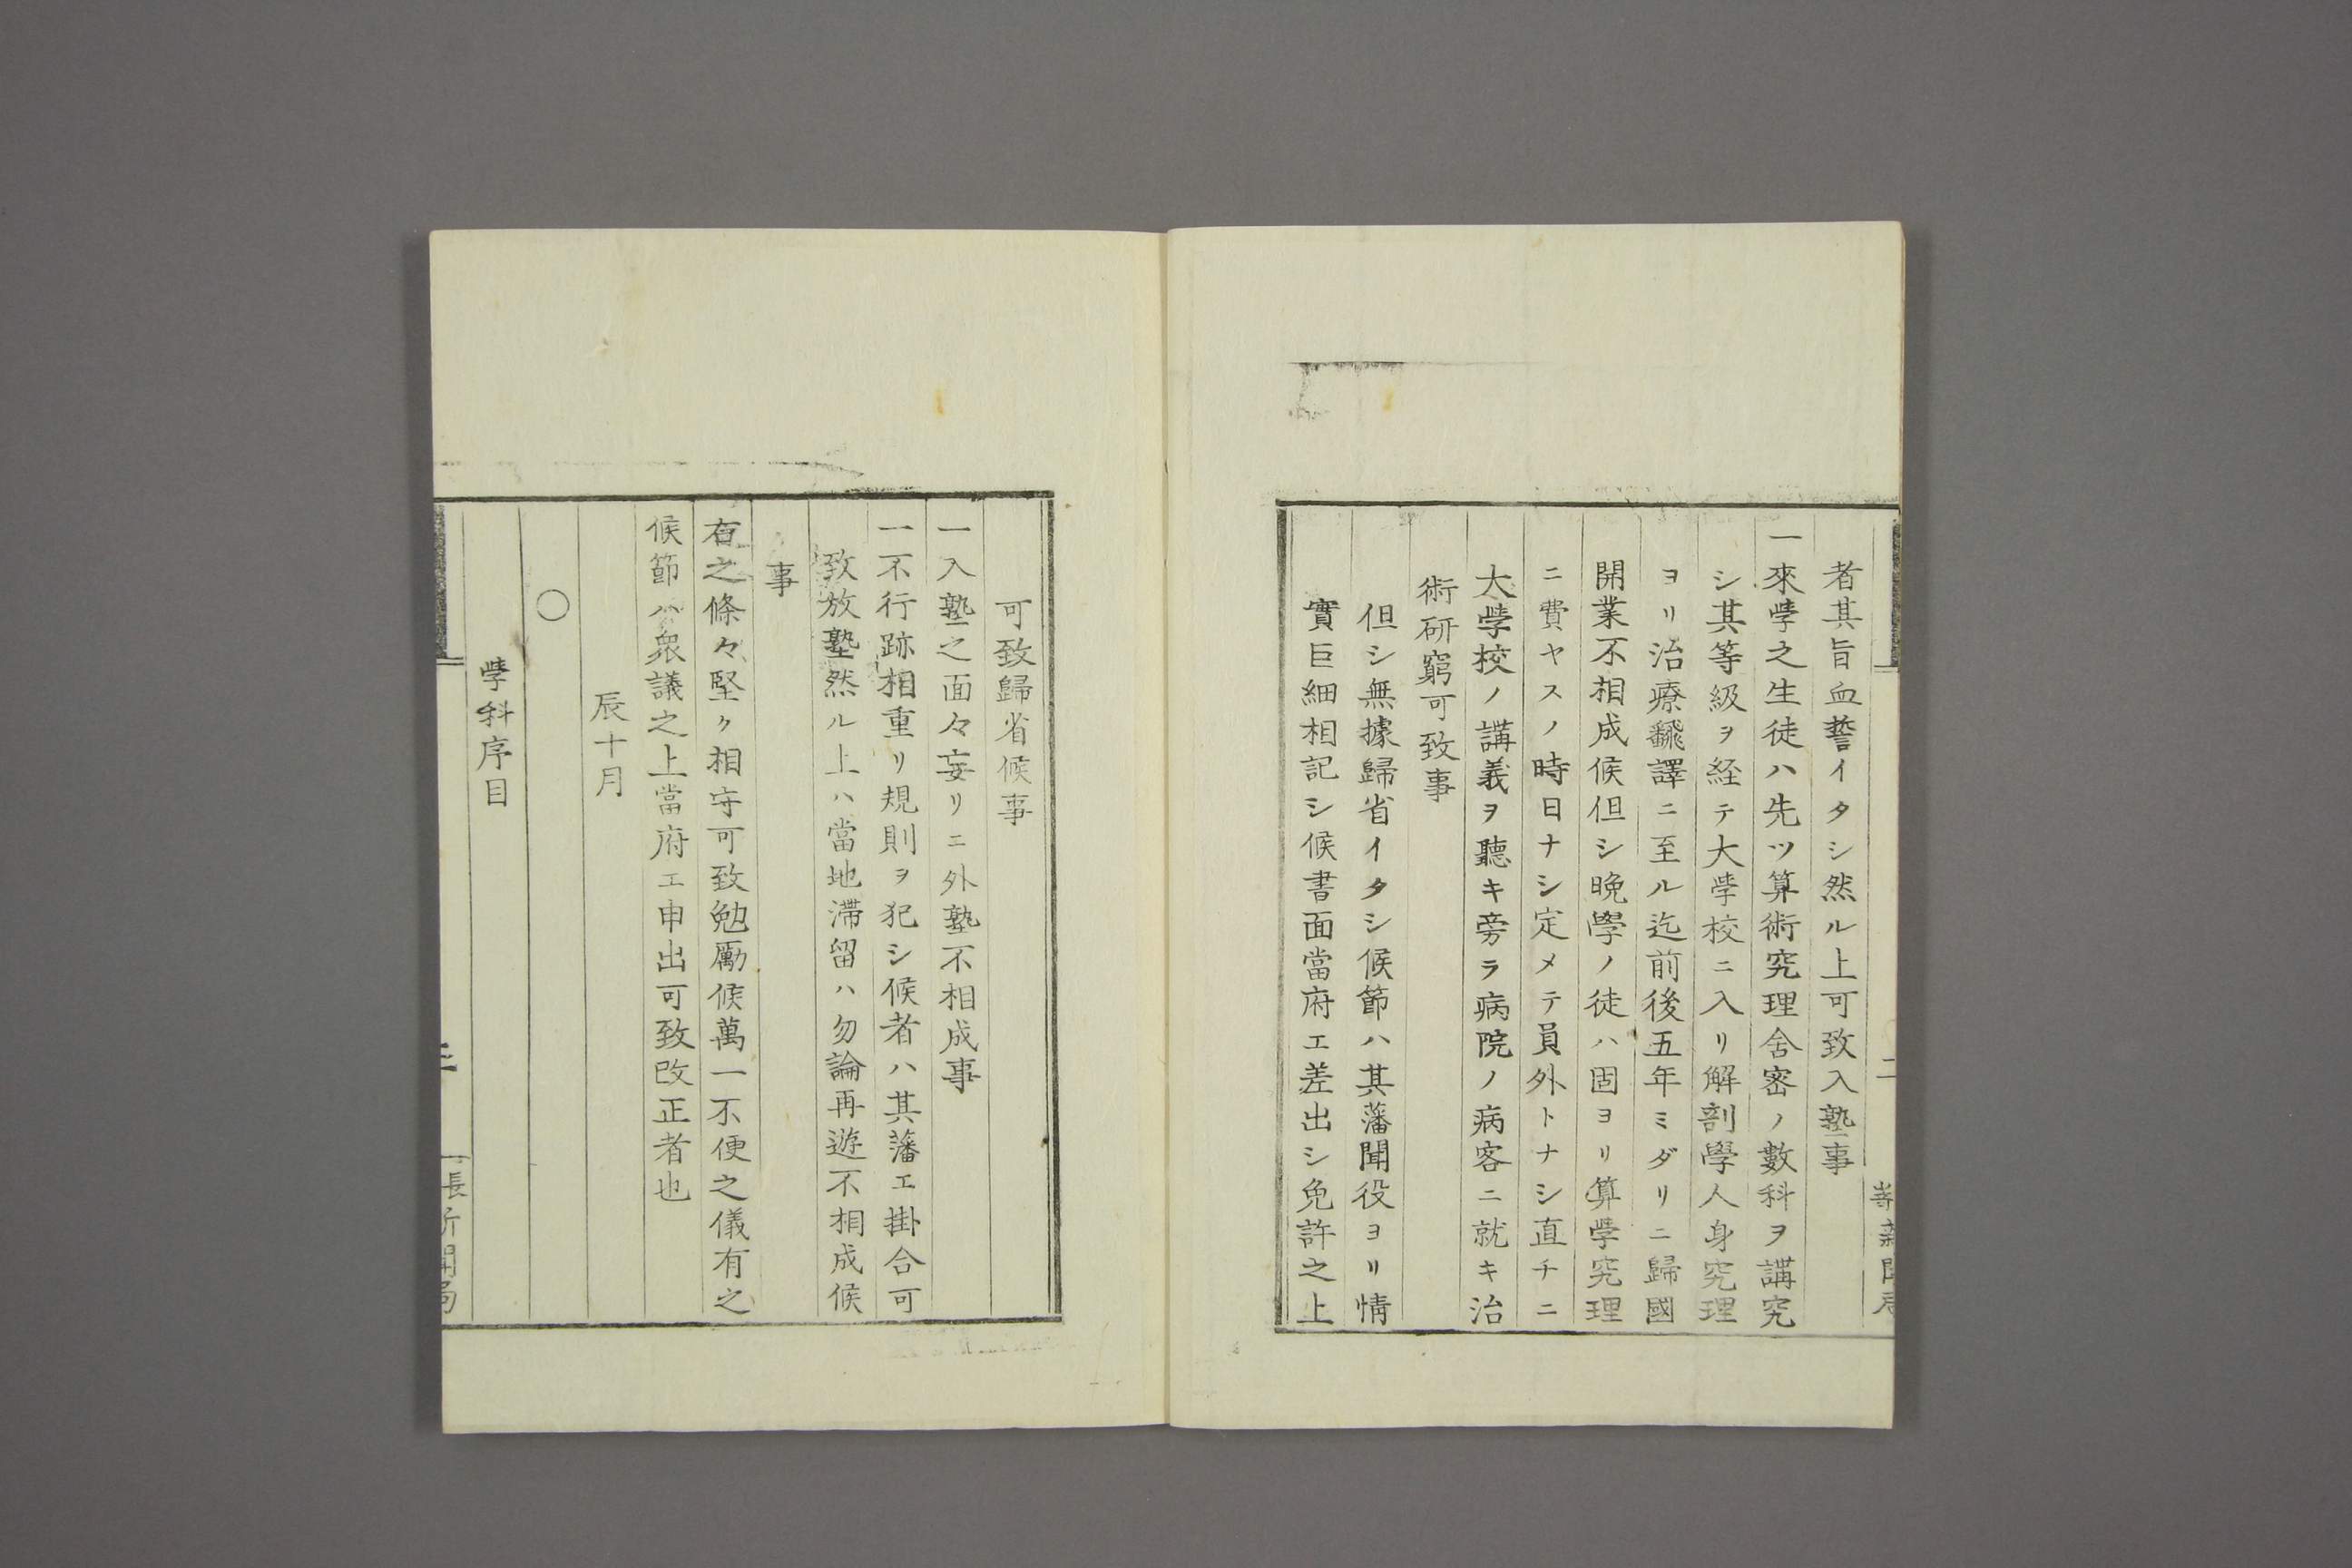 者其旨血誓イタシ然ル上可致入塾事
一來學之生徒ハ先ツ算術究理舎密ノ數科ヲ講究
シ其等級ヲ経テ大學校ニ入リ解剖學人身究理
ヨリ治療飜譯ニ至ル迄前後五年ミダリニ歸國
開業不相成候但シ晩學ノ徒ハ固ヨリ算學究理
ニ費ヤスノ時日ナシ定メテ員外トナシ直チニ
大學校ノ講義ヲ聽キ旁ラ病院ノ病客ニ就キ治
術研窮可致事
但シ無據歸省イタシ候節ハ其藩聞役ヨリ情
實巨細相記シ候書面當府エ差出シ免許之上
可致歸省候事
一入塾之面々妄リニ外塾不相成事
一不行跡相重リ規則ヲ犯シ候者ハ其藩エ掛合可
致放塾然ル上ハ當地滞留ハ勿論再遊不相成候
事
右之條々堅ク相守可致勉勵候萬一不便之儀有之
候節ハ衆議之上當府エ申出可致改正者也
辰十月
〇
學科序目